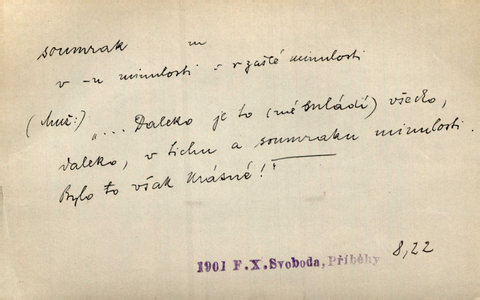 soumrak m
v -u minulosti = v zašlé minulosti
(Muž:) „... Daleko je to (mé mládí) všecko,
daleko, v tichu a soumraku minulosti.
Bylo to však krásné!"
1901 F.X.Svoboda, Příběhy 8,22